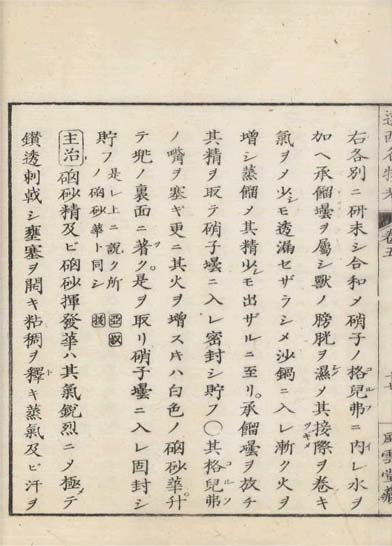 遠西名物考
卷五
風雲堂藏
右各別ニ研末シ合和メ硝子ノ格兒弗ニ内レ水ヲ
コルフ
イ
加ヘ承餾壜ヲ屬シ獸ノ膀胱ヲ濕メ其接際ヲ卷キ
ツギメ
氣ヲメ少シモ透漏セザラシメ沙鍋ニ入レ漸ク火ヲ
增シ蒸餾メ其精少シモ出ザルニ至リ承餾壜ヲ放チ
其精ヲ取テ硝子壜ニ入レ密封シ貯フ〇其格兒弗
コルフ
ノ嘴ヲ塞ギ更ニ其火ヲ增スキハ白色ノ硇砂華升
テ兠ノ裏面ニ著ク是ヲ取リ硝子壜ニ入レ固封シ
貯フ
是レ上ニ説ク所
ノ硇砂華ト同シ
主治 硇砂精及ビ硇砂揮發華ハ其氣鋭烈ニメ極テ
鑚透刺戟シ壅塞ヲ開キ粘稠ヲ釋キ蒸氣及ビ汗ヲ
ト